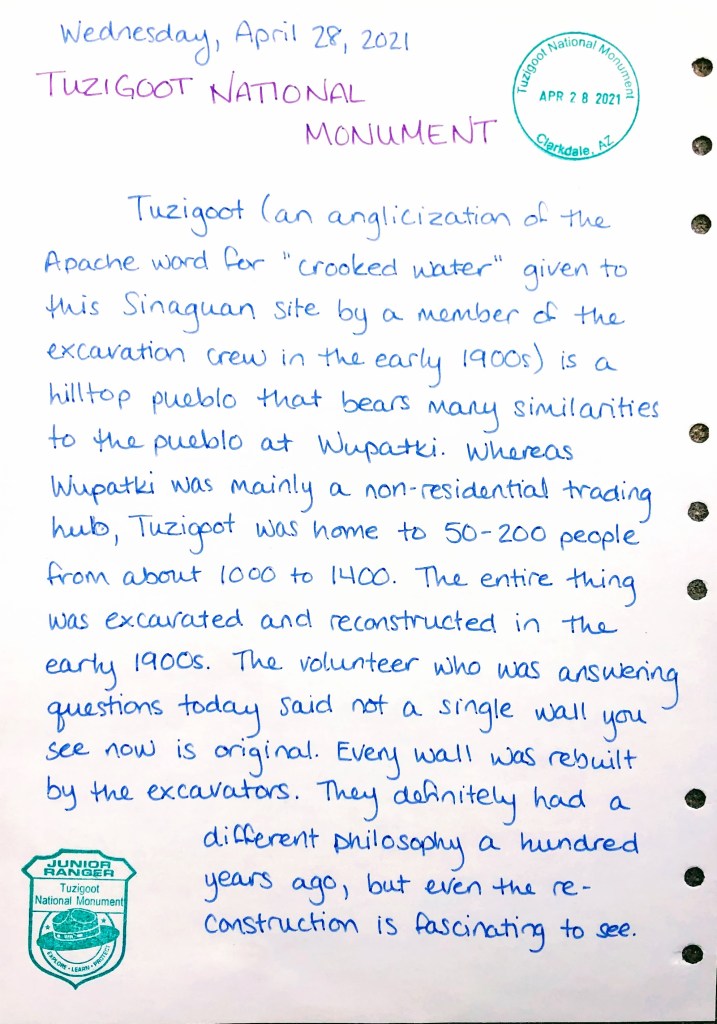 Wednesday, April 28, 2021
TUZIGOOT NATIONAL
MONUMENT
Tuzigoot National Monument
APR 28 2021
Clarkdale, AZ
Tuzigoot (an anglicization of the
Apache word for "crooked water" given to
this Sinaguan site by a member of the
excavation crew in the early 1900s) is a
hilltop pueblo that bears many similarities
to the pueblo at Wupatki. Whereas
Wupatki was mainly a non-residential trading
hub, Tuzigoot was home to 50-200 people
from about 1000 to 1400. The entire thing
was excavated and reconstructed in the
early 1900s. The volunteer who was answering
questions today said not a single wall you
see now is original. Every wall was rebuilt
by the excavators. They definitely had a
different philosophy a hundred
years ago, but even the re-
construction is fascinating to see.
JUNIOR
RANGER
Tuzigoot
National Monument
EXPLORE · LEARN · PROTECT